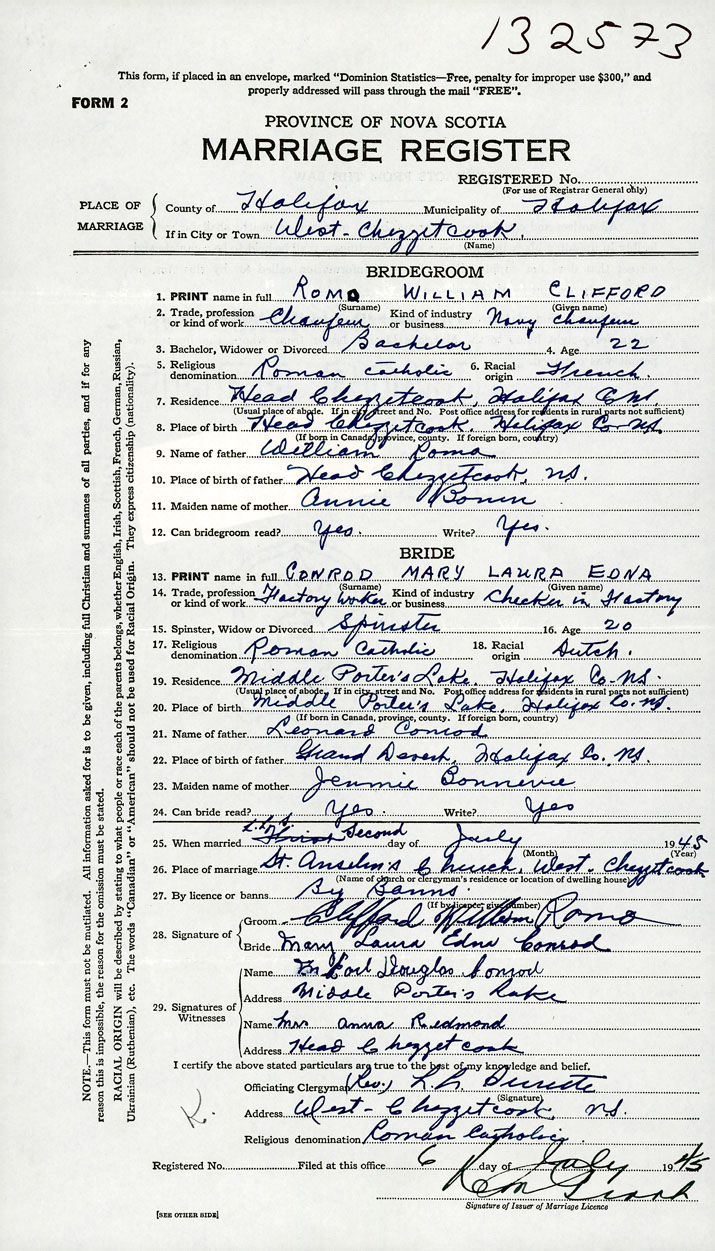 132573
This form, if placed in an envelope, marked "Dominion Statistics—Free, penalty for improper use $300," and
properly addressed will pass through the mail "FREE".
FORM 2
PROVINCE OF NOVA SCOTIA
MARRIAGE REGISTER
REGISTERED No.
(For use of Registrar General only)
PLACE OF MARRIAGE
County of Halifax Municipality of Halifax
If in City or Town West-Chezzetcook.
(Name)
BRIDEGROOM
1. PRINT name in full ROMO WILLIAM CLIFFORD
(Surname) (Given name)
2. Trade, profession or kind of work Chaufeur Kind of industry or business Navy chaufeur
3. Bachelor, Widower or Divorced Bachelor 4. Age 22
5. Religious denomination Roman Catholic 6. Racial origin French.
7. Residence Head Chezzetcook, Halifax Co NS
(Usual place of abode. If in city, street and No. Post office address for residents in rural parts not sufficient)
8. Place of birth Head Chezzetcook. Halifax Co. NS.
(If born in Canada, province, county. If foreign born, country)
9. Name of father William Romo
10. Place of birth of father Head Chezzetcook, NS.
11. Maiden name of mother Annie Bonin
12. Can bridegroom read? Yes. Write? Yes.
BRIDE
13. PRINT name in full CONROD MARY LAURA EDNA
(Surname) (Given name)
14. Trade, profession or kind of work Factory Woker Kind of industry or business Checker in Factory
15. Spinster, Widow or Divorced Spinster 16. Age 20
17. Religious denomination Roman Catholic 18. Racial origin Dutch.
19. Residence Middle Porter's Lake, Halifax Co. NS.
(Usual place of abode. If in city, street and No. Post office address for residents in rural parts not sufficient)
20. Place of birth Middle Porter's Lake, Halifax Co. NS.
(If born in Canada, province, county. If foreign born, country)
21. Name of father Leonard Conrod
22. Place of birth of father Grand Desert, Halifax Co. NS.
23. Maiden name of mother Jennie Bonnevie
24. Can bride read? Yes. Write? Yes
25. When married Second day of July 1945
(Month) (Year)
26. Place of marriage St. Anselm's Church, West-Chezzetcook
(Name of church or clergyman's residence or location of dwelling house)
27. By licence or banns By Banns.
(If by licence, give number)
28. Signature of
Groom Clifford William Romo
Bride Mary Laura Edna Conrod
29. Signatures of Witnesses
Name Earl Douglas Conrod
Address Middle Porter's Lake
Name Mrs Anna Redmond
Address Head Chezzetcook
I certify the above stated particulars are true to the best of my knowledge and belief.
Officiating Clergyman (Rev.)
(Signature)
Address West-Chezzetcook, NS.
Religious denomination Roman Catholic.
K.
Registered No. Filed at this office 6 day of July 1945
Signature of Issuer of Marriage Licence
[SEE OTHER SIDE]
NOTE.—This form must not be mutilated. All information asked for is to be given, including full Christian and surnames of all parties, and if for any
reason this is impossible, the reason for the omission must be stated.
RACIAL ORIGIN will be described by stating to what people or race each of the parents belongs, whether English, Irish, Scottish, French, German, Russian,
Ukrainian (Ruthenian), etc. The words "Canadian" or "American" should not be used for Racial Origin. They express citizenship (nationality).